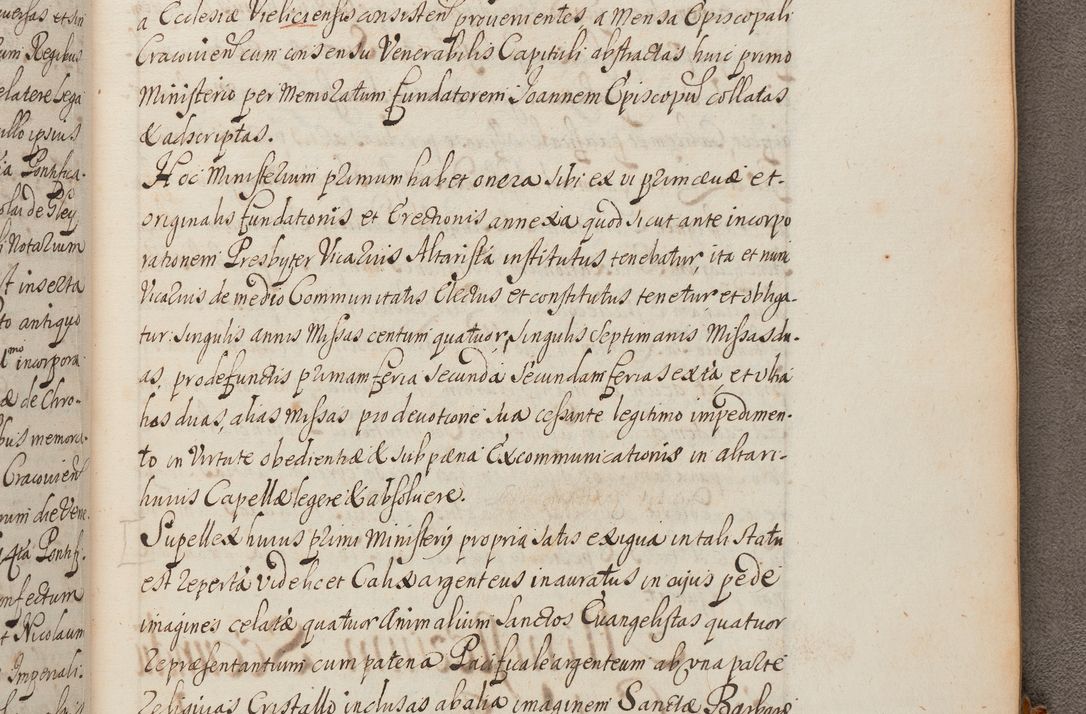 a Ecclesiæ Vieliciensis consisten provenientes a Mensa Episcopali
Cracovien cum consensu Venerabilis Capituli abstractas huic primo
Ministerio per Memoratum fundatorem Joannem Episcopu collatas
& adscriptas.
Hoc Ministerium primum habet onera sibi ex vi primævæ et
originalis fundationis et Erectionis annexa quod sicut ante incorpo
rationem Presbyter Vicarius Altarista institutus tenebatur, ita et nunc
Vicarius de medio Communitatis Electus et constitutus tenetur et obliga-
tur singulis annis Missas centum quatuor, singulis septimanis Missas du-
as, pro defunctis primam feria secunda secundam feria sexta et ultra
has duas, alias Missas pro devotione sua cessante legitimo impedimen-
to in Virtute obedientiæ & sub pæna Excommunicationis in altari
huius Capellæ legere & absolvere.
Supellex huius primi Ministerij propria satis exigua in tali statu
est reperta videlicet Calix argenteus inauratus in cujus pede
imagines celatæ quatuor Animalium Sanctos Evangelistas quatuor
repræsentantium cum patena Pacificale argenteum ab una parte
reliquias Cristallo inclusas ab alia imaginem Sanctæ Barbaræ
uersas et sin
um Regibus
elatere Lega
ullo ipsius
ia Pontifica-
olai de
i Notarium
t inserta
to antiquo
incorpora
æ de Chro-
bus memora-
Cracovien
rum die Vene
4ta Pontif.
onfectum
t Nicolaum
Imperiali